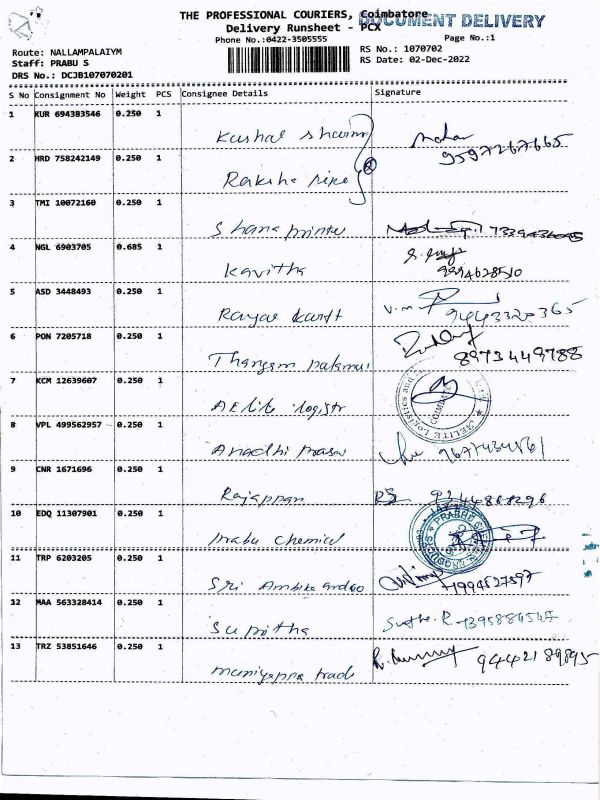 THE PROFESSIONAL COURIERS, Coimbatore
DOCUMENT DELIVERY
Delivery Runsheet - PCX
Phone No.:0422-3505555
Page No.:1
Route: NALLAMPALAIYM
Staff: PRABU S
DRS No.: DCJB107070201
RS No.: 1070702
RS Date: 02-Dec-2022
S No Consignment No Weight PCS Consignee Details Signature
1 KUR 694383546 0.250 1
Kushal sharm
9597267665
2 HRD 758242149 0.250 1
Raksha
3 TMI 10072160 0.250 1
Shana printer
4 NGL 6903705 0.685 1
Kavitha
9994628510
5 ASD 3448493 0.250 1
9443320365
6 PON 7205718 0.250 1
Thangam
8973449788
7 KCM 12639607 0.250 1
AElite logistr
8 VPL 499562957 0.250 1
9 CNR 1671696 0.250 1
Rajappan
10 EDQ 11307901 0.250 1
Prabu chemical
11 TRP 6203205 0.250 1
Sri Ambika
12 MAA 563328414 0.250 1
Supritha
13 TRZ 53851646 0.250 1
muniyappa trad
9442189895